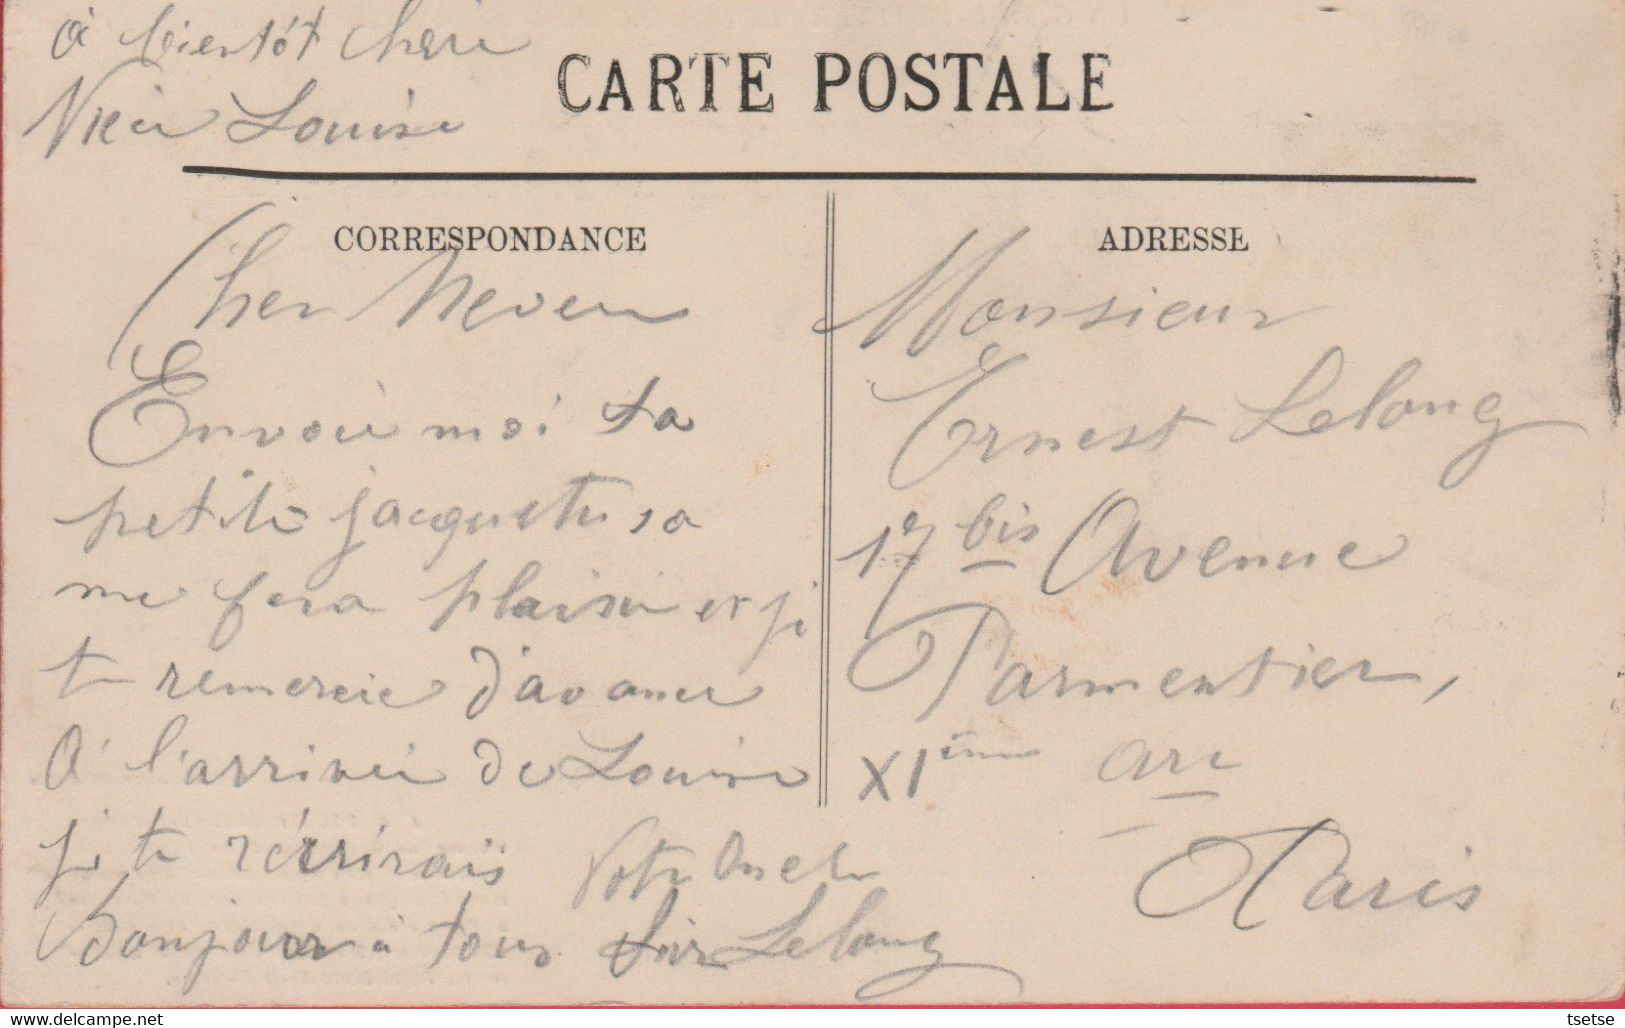 à bientôt chère
Nièce Louise
CARTE POSTALE
CORRESPONDANCE
ADRESSE
Cher Neveu
Envoie moi ta
petite jaquette sa
me fera plaisir et je
te remercie d'avance
à l'arrivée de Louise
je te récrirais Votre Oncle
Bonjour à tous Lelong
Monsieur
Ernest Lelong
17 bis Avenue
Parmentier,
XIème arr
Paris
tsetse